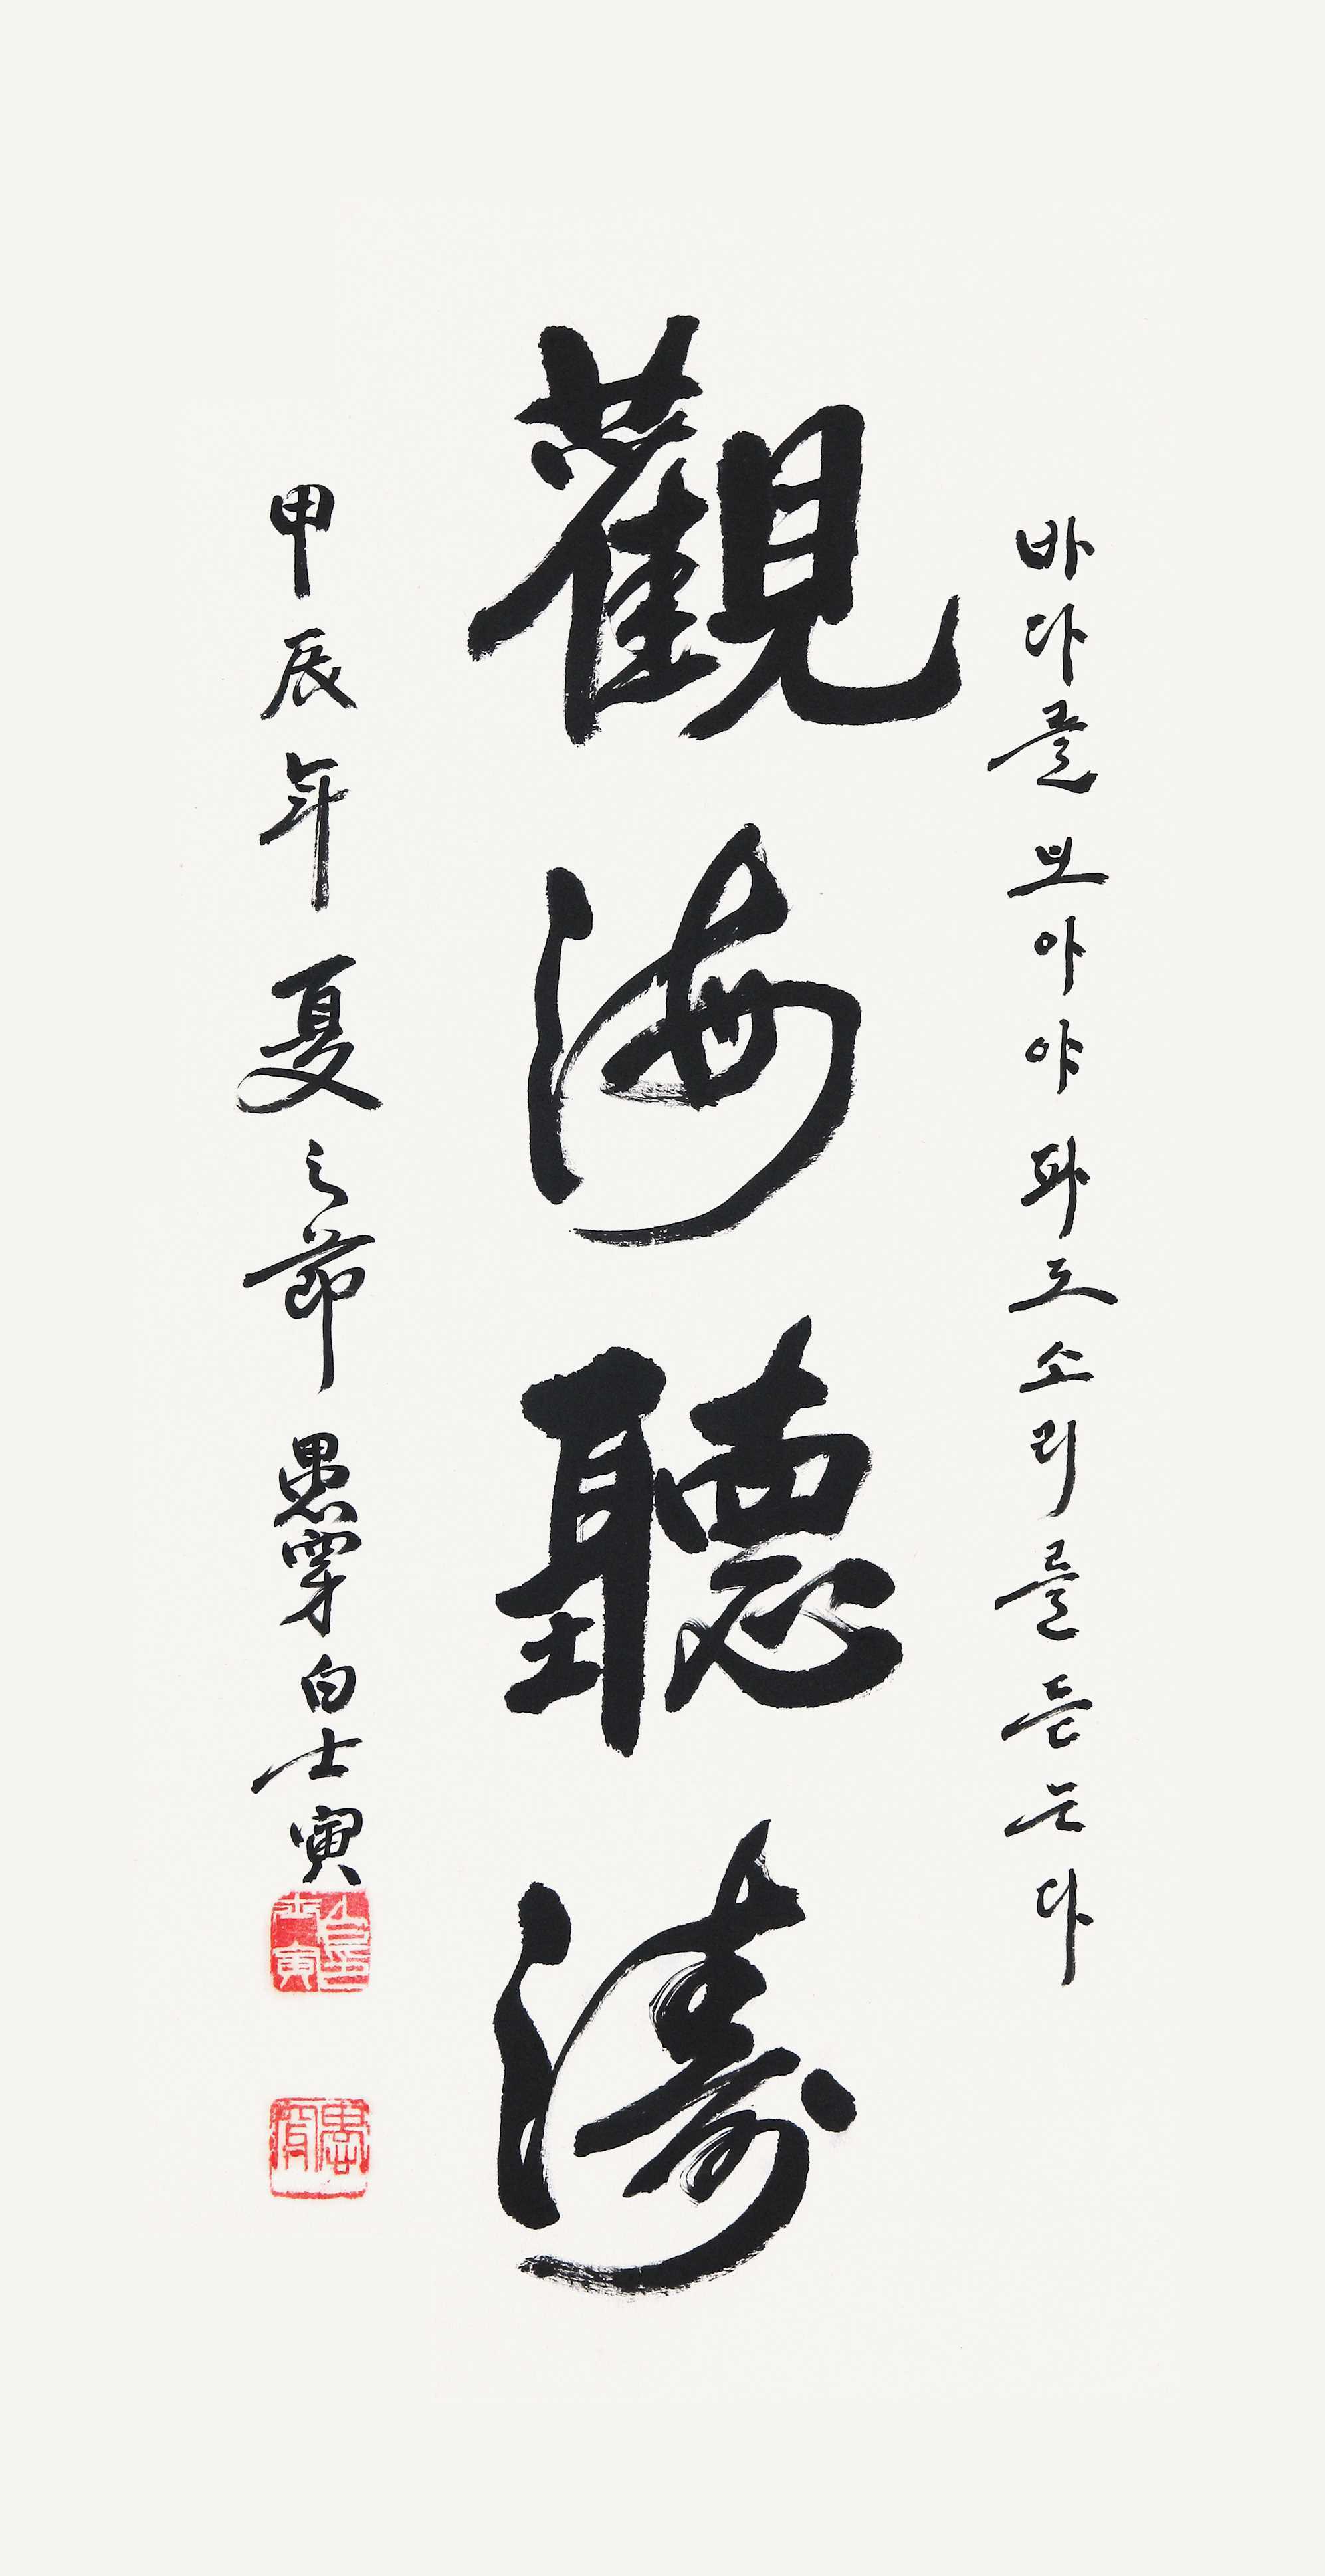 바다를 보아야 파도소리를 듣는다
觀海聽濤
甲辰年夏之節 愚穿 白士寅
白士寅印
愚穿